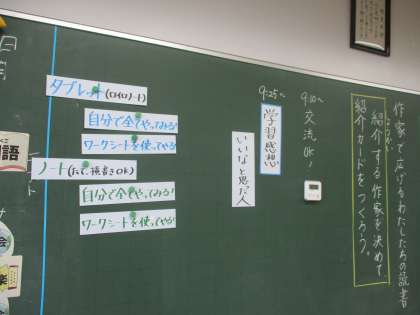 作家で広げるわたしたちの読書
紹介する作家を決めて
紹介カードをつくろう。
9:10〜
交流OK!
9:25〜
学習感想
いいなと思った人
タブレット(ロイロノート)
自分で全てやってみる!
ワークシートを使ってやる!
ノート(たて、横書きOK)
自分で全てやってみる!
ワークシートを使ってやる!